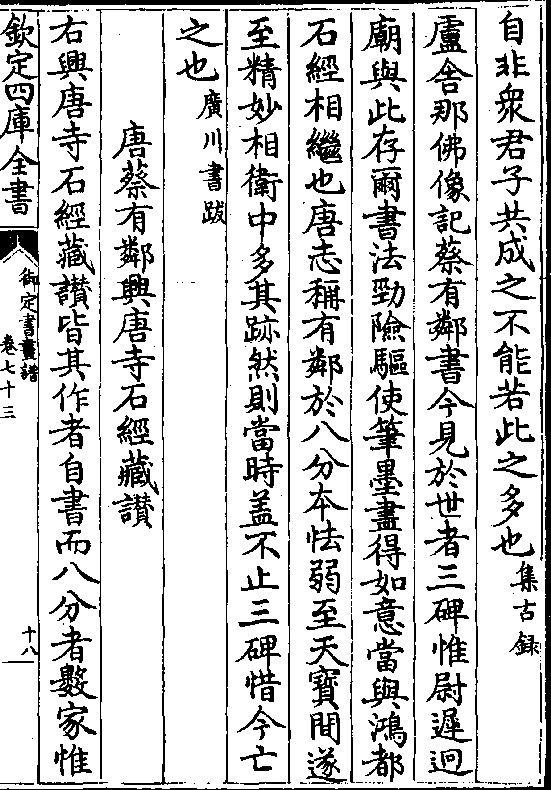 自非衆君子共成之不能若此之多也集古録
盧舎那佛像記蔡有鄰書今見於世者三碑惟尉遲迥
廟與此存爾書法勁險驅使筆墨盡得如意當與鴻都
石經相繼也唐志稱有鄰於八分本怯弱至天寶間遂
至精妙相衛中多其跡然則當時盖不止三碑惜今亡
之也廣川書跋
唐蔡有鄰興唐寺石經藏讃
右興唐寺石經藏讃皆其作者自書而八分者數家惟
欽定四庫全書
御定書畫譜
卷七十三
十八